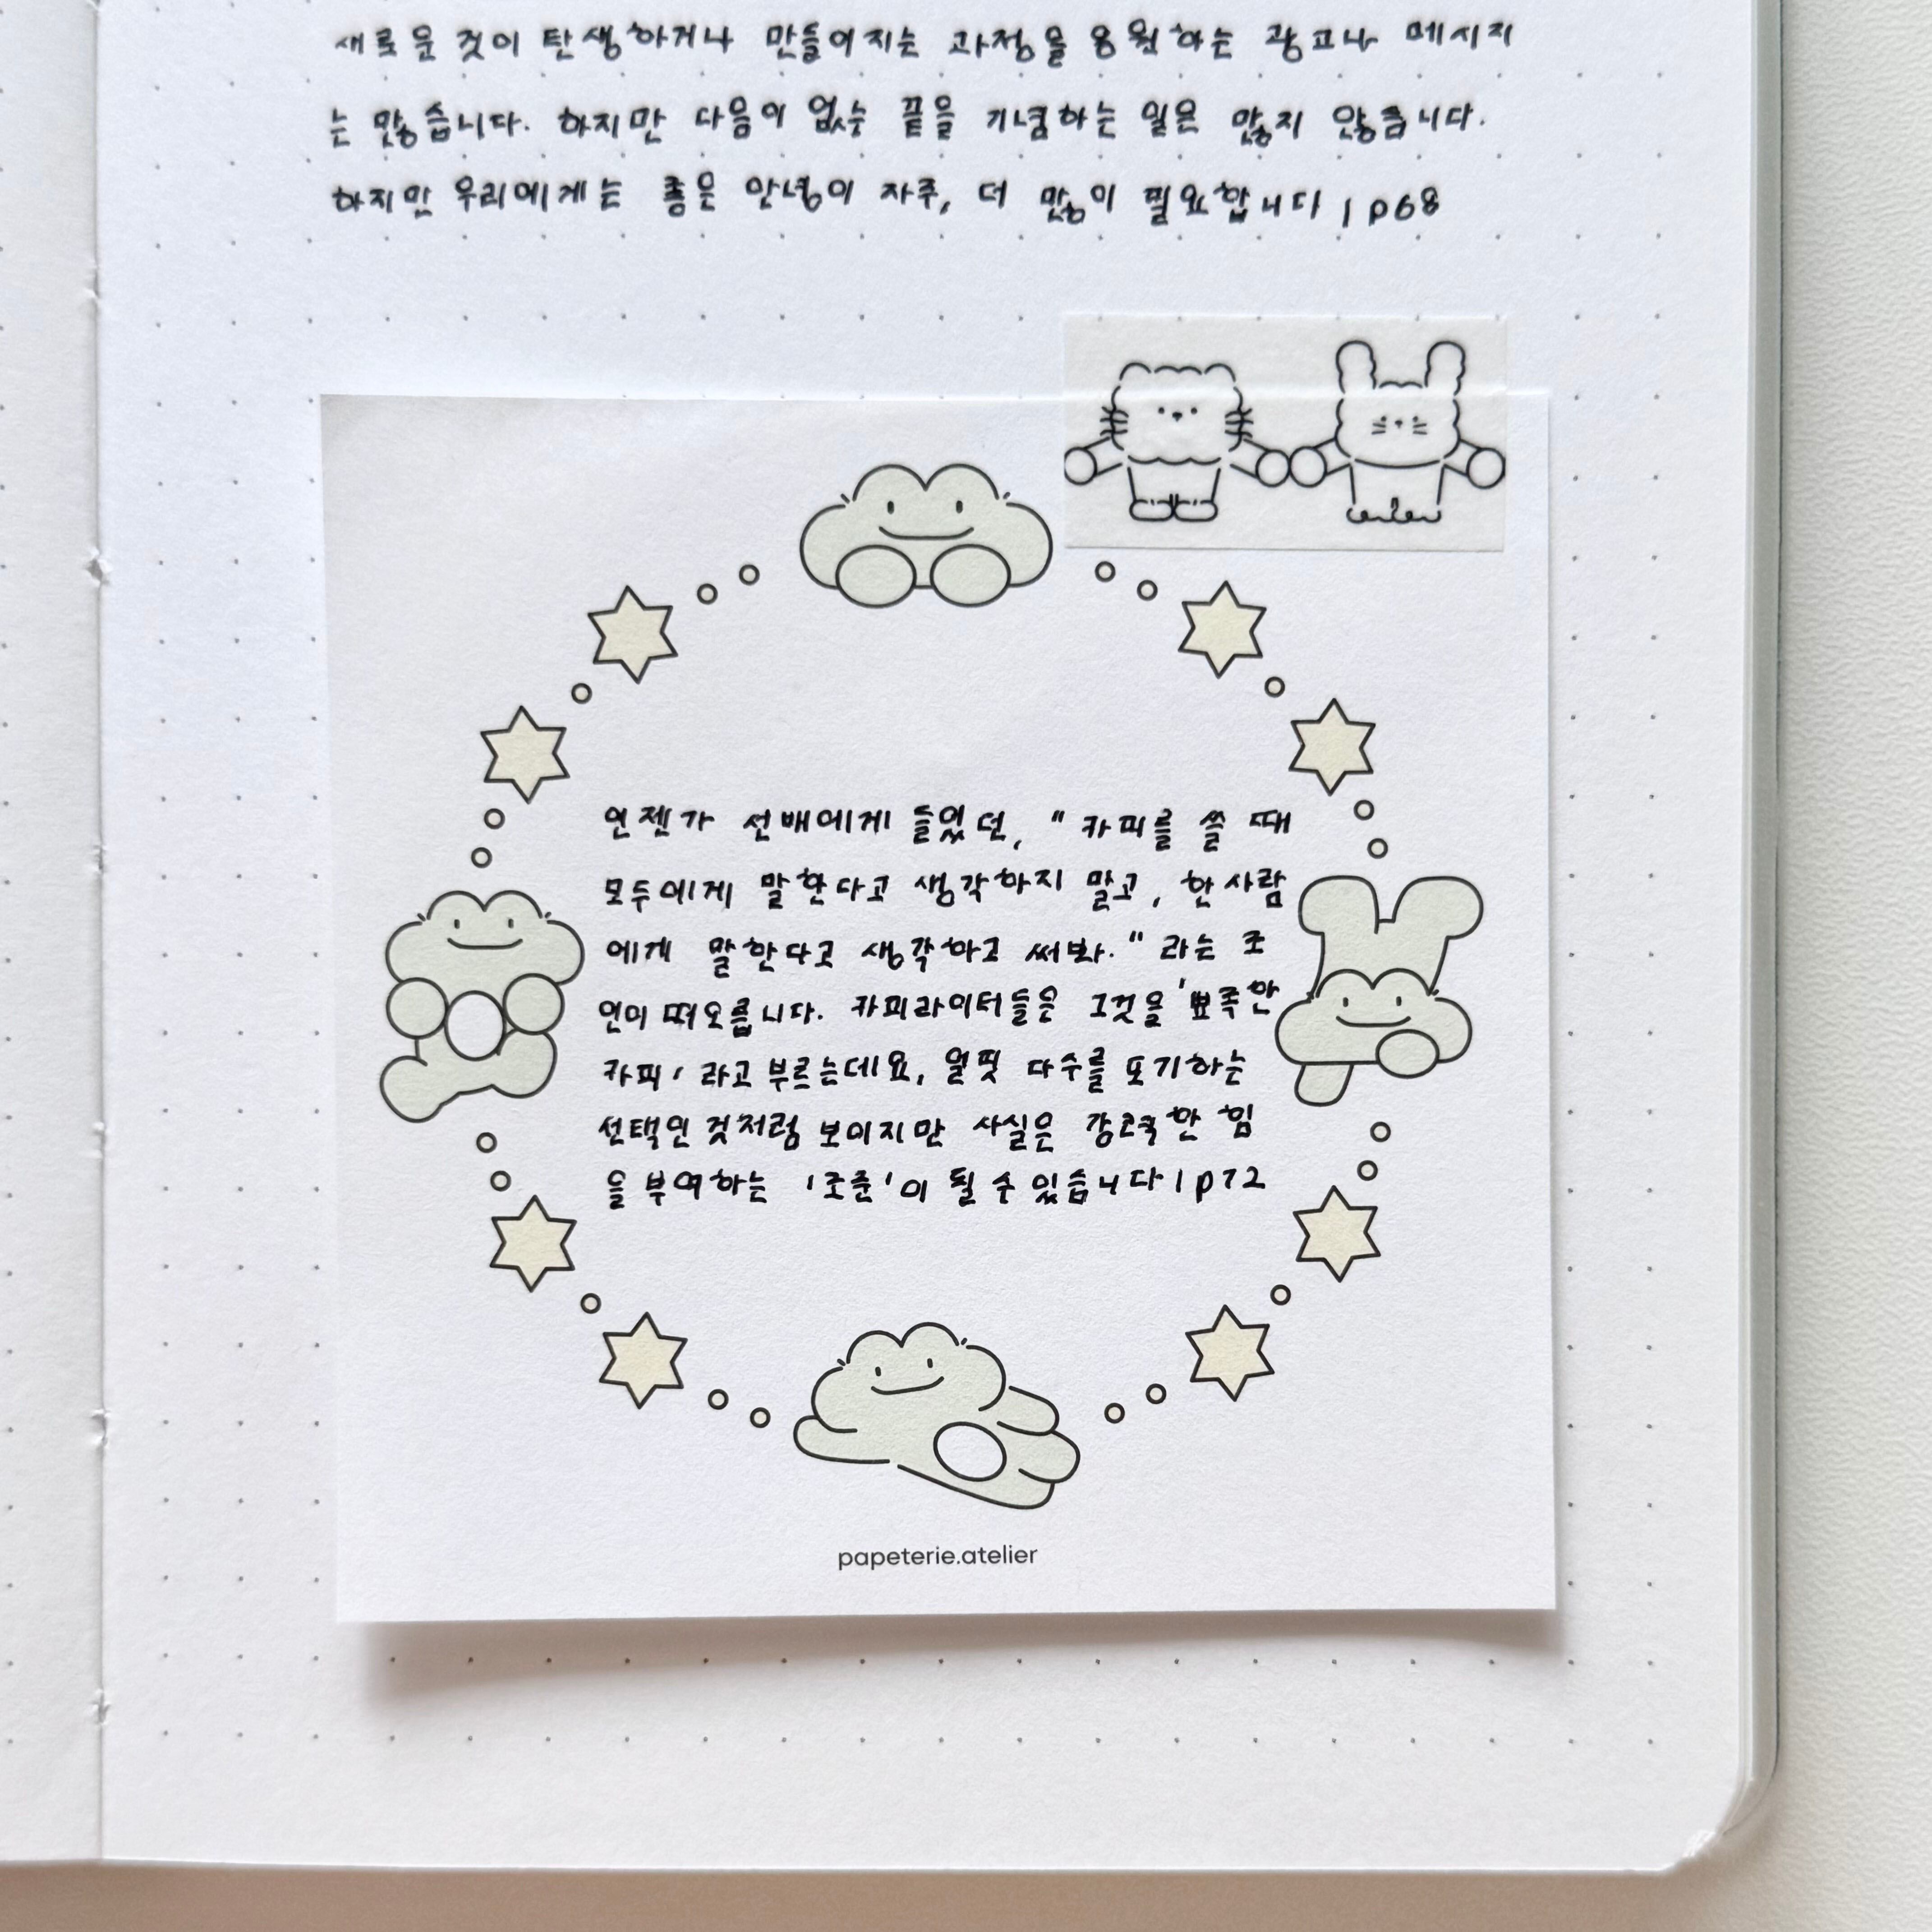 새로운 것이 탄생하거나 만들어지는 과정을 응원하는 광고나 메시지
는 많습니다. 하지만 다음이 없는 끝을 기념하는 일은 많지 않습니다.
하지만 우리에게는 좋은 안녕이 자주, 더 많이 필요합니다 | p68
언젠가 선배에게 들었던, "카피를 쓸 때
모두에게 말한다고 생각하지 말고, 한 사람
에게 말한다고 생각하고 써봐." 라는 조
언이 떠오릅니다. 카피라이터들은 그것을 '뾰족한
카피' 라고 부르는데요, 얼핏 다수를 포기하는
선택인 것처럼 보이지만 사실은 강력한 힘
을 부여하는 '조준'이 될 수 있습니다 | p72
papeterie.atelier